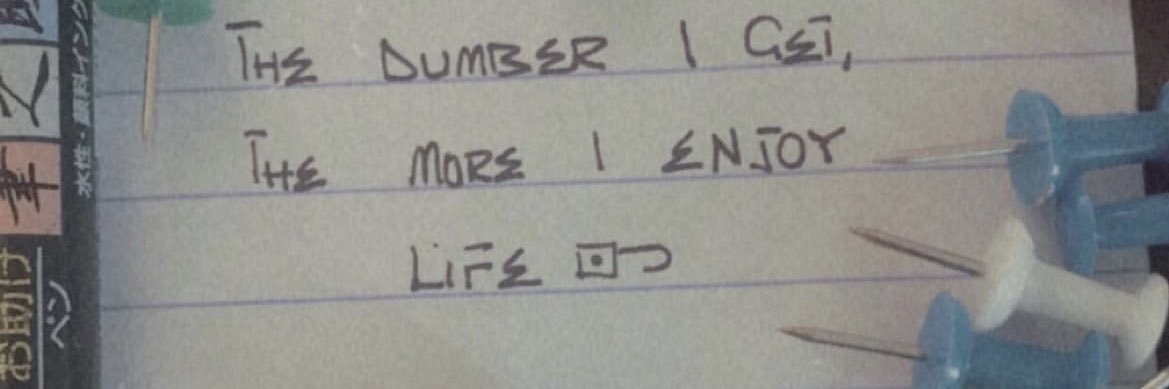 THE DUMBER I GET,
THE MORE I ENJOY
LIFE ⊡⊃
水性・顔料インク
お助け
ペン